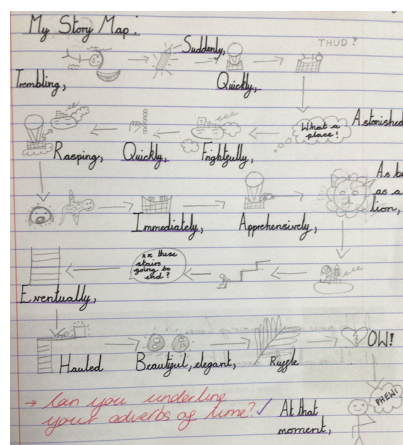 My Story Map:
Suddenly,
THUD!
Trembling,
Quickly,
What a place!
Astonished
Rasping, Quickly, Frightfully,
As b
as a
lion,
Immediately, Apprehensively,
these
stairs
going to
end?
Eventually,
OW!
Hauled Beautiful, elegant, Ruffle
→ Can you underline
your adverbs of time? ✓
At that
moment,
PHEW!